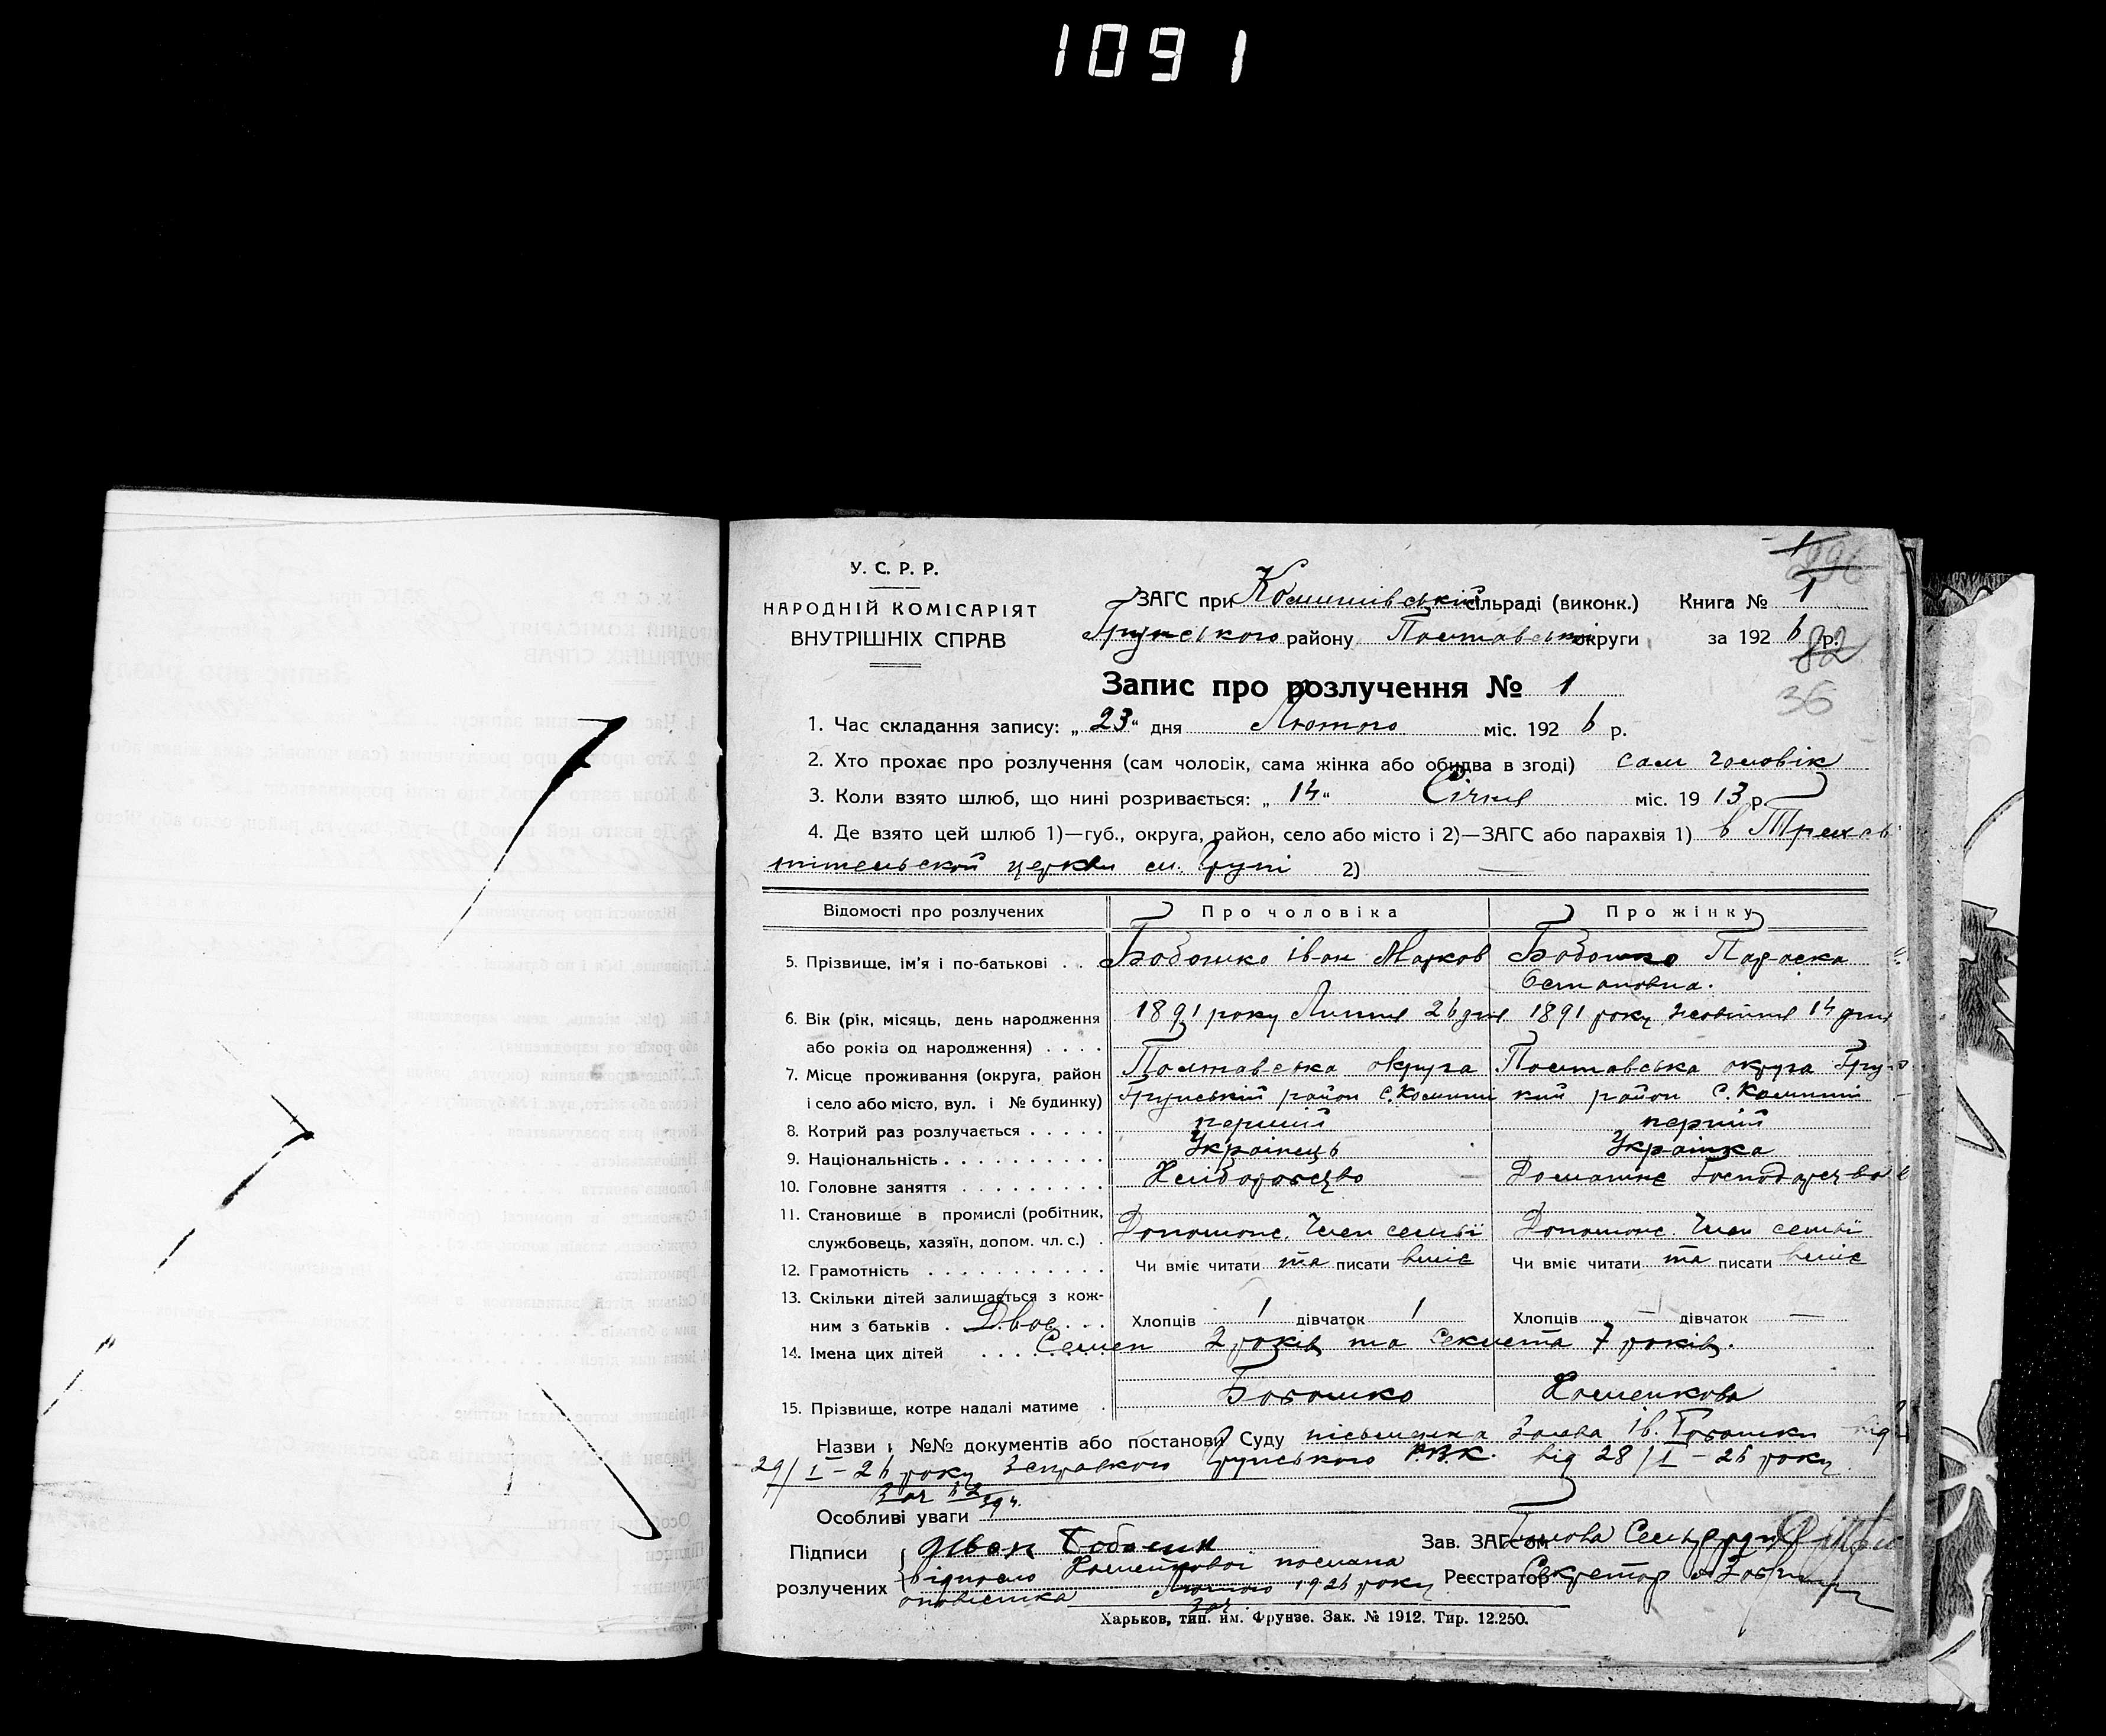 1091
У. С. Р. Р.
НАРОДНІЙ КОМІСАРІЯТ
ВНУТРІШНІХ СПРАВ
ЗАГС при Комишівській сільраді (виконк.) Книга № 1
Грунського району Полтавської округи за 1926 р.
82
36
Запис про розлучення № 1
1. Час складання запису: „23“ дня Лютого міс. 1926 р.
2. Хто прохає про розлучення (сам чоловік, сама жінка або обидва в згоді) сам чоловік
3. Коли взято шлюб, що нині розривається: „14“ Січня міс. 1913 р.
4. Де взято цей шлюб 1)—губ., округа, район, село або місто і 2)—ЗАГС або парахвія 1) в Трехсв
тительской церкви см. Груні 2) —
Відомості про розлучених
Про чоловіка
Про жінку
5. Прізвище, ім'я і по-батькові . .
Бобошко Іван Марков
Бобошко Параска
Остаповна.
6. Вік (рік, місяць, день народження
або років од народження) . . . .
1891 року Липня 26 дня
1891 року Жовтня 14 дня
7. Місце проживання (округа, район
і село або місто, вул. і № будинку)
Полтавська округа
Грунський район С. Комиші
Полтавська округа Грунс
кий район С. Комиші
8. Котрий раз розлучається . . . . .
перший
перший
9. Національність . . . . . . . . . .
Українець
Українка
10. Головне заняття . . . . . . . . .
Хліборобство
Домашнє Господарство
11. Становище в промислі (робітник,
службовець, хазяїн, допом. чл. с.) .
Допомоис. Член семьї
Допомоис. Член семьї
12. Грамотність . . . . . . . . . . .
Чи вміє читати та писати вміє
Чи вміє читати та писати вміє
13. Скільки дітей залишається з кож-
ним з батьків . Двоє . . .
Хлопців 1 дівчаток 1
Хлопців — дівчаток —
14. Імена цих дітей . . . . . . . Семен 2 років та Секлета 7 років.
15. Прізвище, котре надалі матиме .
Бобошко
Хоменкова
Назви і №№ документів або постанови Суду письменна Заява Ів. Бобошки від
29/I – 26 року Зсправкою Грунського Р.В.К. від 28/I – 26 року
Особливі уваги
Підписи
розлучених
Іван Бобошк
відносно Хоменкової послана
оповістка Лютого 1926 року
Зав. ЗАГСом Голова Сельради
Реєстратор Секретар
Харьков, тип. им. Фрунзе. Зак. № 1912. Тир. 12.250.